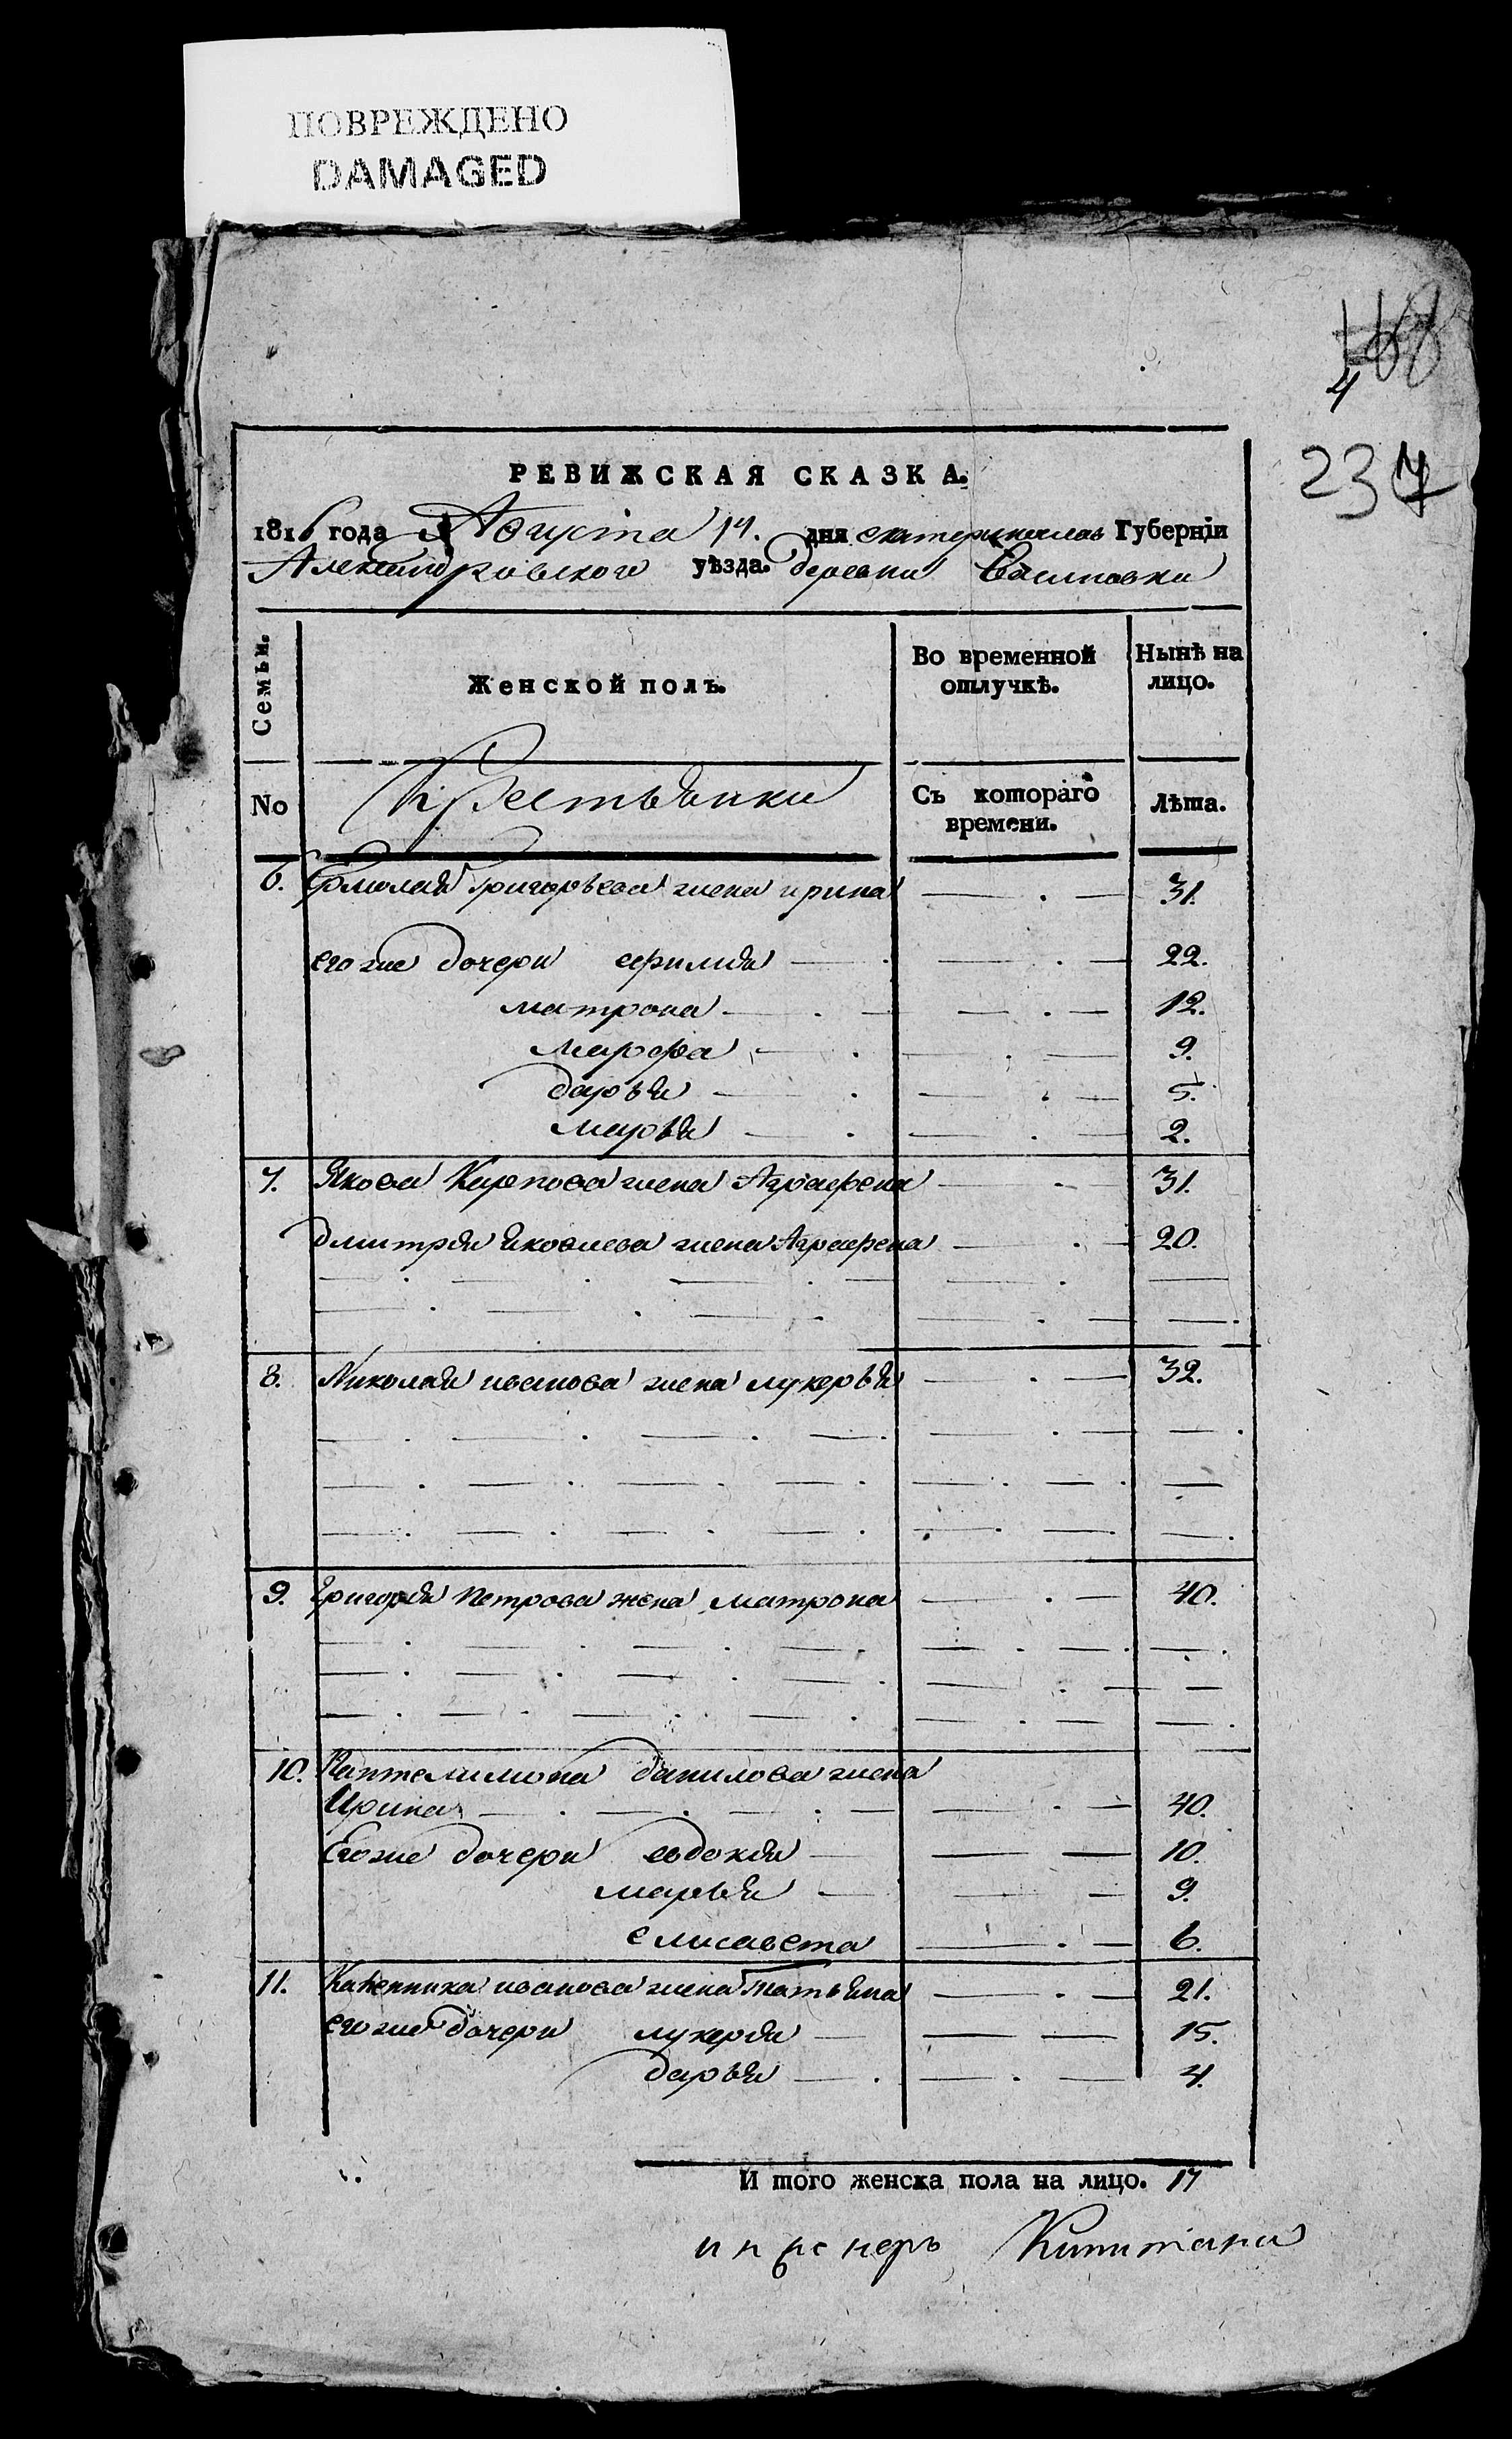 ПОВРЕЖДЕНО
DAMAGED
4
237
РЕВИЖСКАЯ СКАЗКА.
1816 года Августа 14. дня екатеринослав Губерніи
Александровского уѣзда. деревни
Семьи.
Женской полъ.
Во временной отлучкѣ.
Нынѣ на лицо.
No
Крестьянки
Съ котораго времени.
Лѣта.
6. Ермолая Григорьева жена ирина — . — 31.
его же дочери ефимия — . — . — 22.
матрона — . — — . — 12.
марфа — . — . — 9.
дарья — . — . — 5.
марья — . — . — 2.
7. Якова Карпова жена Аграфена — - 31.
дмитрия яковлева жена Аграфена — . — 20.
8. Николая иванова жена лукерья — . — 32.
9. Григория Петрова жена матрона — . — 40.
10. Пантелимона данилова жена
Ирина — . — . — . — — . — 40.
Его же дочери евдокия — — — 10.
марья — — — 9.
елисавета — . — 6.
11. иванова жена татьяна — . — 21.
его же дочери лукерия — — — 15.
дарья — . — . — 4.
И того женска пола на лицо. 17
инженеръ Капитана